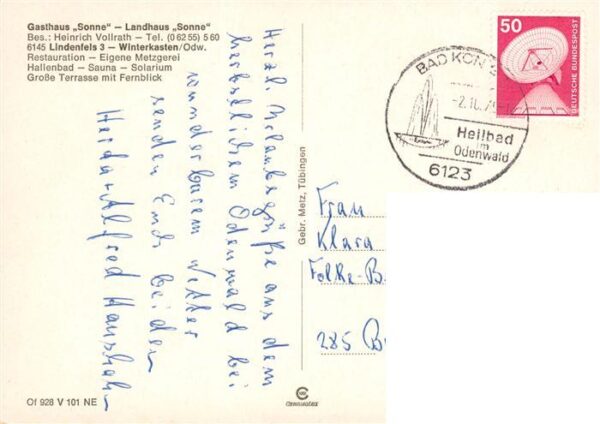 Gasthaus „Sonne" — Landhaus „Sonne"
Bes.: Heinrich Vollrath — Tel. (0 62 55) 5 60
6145 Lindenfels 3 — Winterkasten/Odw.
Restauration — Eigene Metzgerei
Hallenbad — Sauna — Solarium
Große Terrasse mit Fernblick
Herzl. Urlaubsgrüße aus dem
herbstlichen Odenwald bei
wunderbarem Wetter
senden Euch beiden
Herda + Alfred
Of 928 V 101 NE
Gebr. Metz, Tübingen
50
DEUTSCHE BUNDESPOST
BAD KÖN
-2.10.7
Heilbad
im
Odenwald
6123
Frau
Klara
Folke-B
285 B